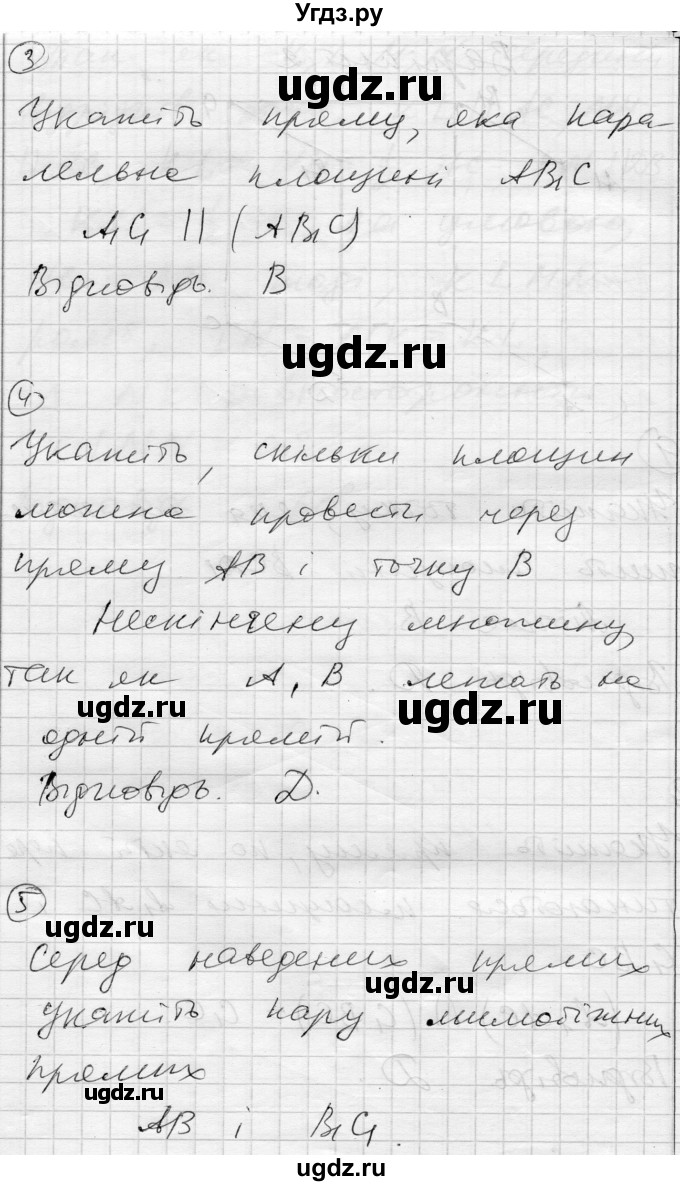 Угдз.ру
3
ugdz.ru
Укажіть пряму, яка пара
лельна площині AB₁C
A₁C₁ || (AB₁C)
Відповідь. В
ugdz.ru
4
Укажіть, скільки площин
можна провести через
пряму AB і точку B
Нескінчену множину,
так як A, B лежать на
ugdz.ru
ugdz.ru
одній прямій.
Відповідь. Д.
5
ugdz.ru
Серед наведених прямих
ugdz.ru
укажіть пару мимобіжних
прямих
ugdz.ru
AB і B₁C₁.
ugdz.ru